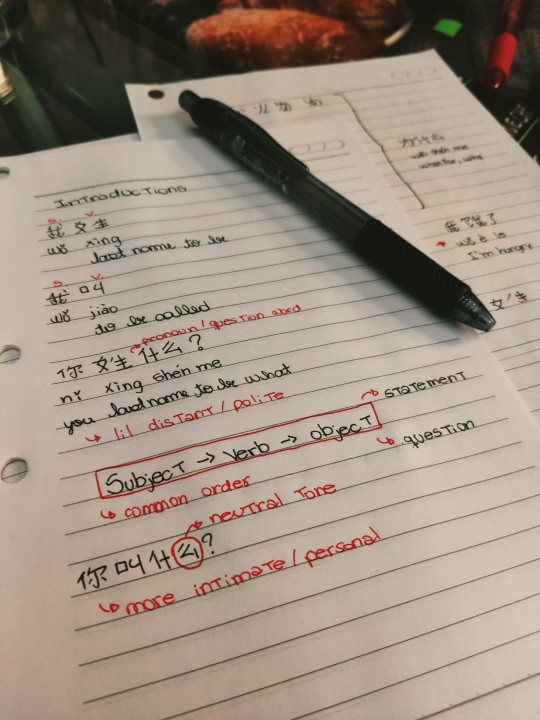 Introductions
S. V.
我 姓
wǒ xìng
last name to be
S. V.
我 叫
wǒ jiào
to be called
pronoun/question word
你 姓 什么?
nǐ xìng shén me
you last name to be what
↳ lil distant/polite
statement
Subject → verb → object
question
↳ common order
neutral tone
你叫什么?
↳ more intimate/personal
为什么
wèi shén me
what for, why
我饿了
wǒ è le
I'm hungry